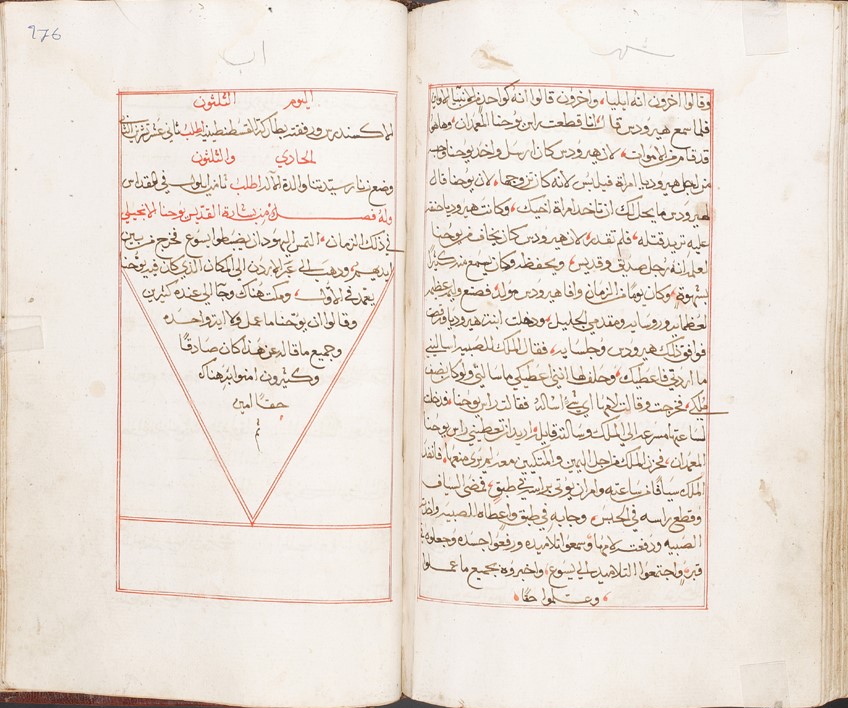 شهر
وقالوا اخرون انه ايليا، واخرون قالوا انه كواحد من الانبيا الاولين
فلما سمع هيرودس قال انا قطعت راس يوحنا المعمدان، وهاهو
قد قام من الاموات، لان هيرودس كان ارسل واخد يوحنا وحبسه
من اجل هيروديا امراة فيلبس لانه كان تزوجها، لان يوحنا قال
لهيرودس ما يحل لك ان تاخد امراة اخيك، وكانت هيروديا حنقه
عليه تريد قتله، فلم تقدر، لان هيرودس كان يخاف من يوحنا
لعلمه انه رجل صديق وقديس، ويحفظه وكان يسمع منه كثيرًا
بشهوةٍ، وكان يومًا من الزمان وافا هيرودس مولد، فصنع وليمه عظيمه
لعظمايه وروسايه ومقدمي الجليل، ودخلت ابنة هيروديا ورقصت
فوافق ذلك هيرودس وجلسايه، فقال الملك للصبيه اساليني
ما اردتي فاعطيك، وحلف لها انني اعطيكي ما سالتي ولو كان نصف
ملكي، فخرجت وقالت لامها اي شي اساله، فقالت راس يوحنا، فدخلت
لساعتها مسرعه الى الملك وسالته قايله، اريد ان تعطيني راس يوحنا
المعمدان، فحزن الملك من اجل اليمين والمتكيين معه لم يرى منعها، فانفد
الملك سيافًا من ساعته وامر ان يوتى براسه في طبق، فمضى السياف
وقطع راسه في الحبس، وجا به في طبق واعطاه للصبيه واخذته
الصبيه ودفعته لامها، وسمعوا تلاميذه ورفعوا جسده وجعلوه في
قبرٍ، واجتمعوا التلاميد الى يسوع، واخبروه بجميع ما عملوا
وعلموا حقًا
276
اب
اليوم الثلثون
بطاركة القسطنطينيه اطلب ثاني عشر تشرين الثاني
الحادي والثلثون
وضع زنار سيدتنا والدة الاله اطلب ثامن ايلول في القداس
وله فصل من بشارة القديس يوحنا الانجيلي
في ذلك الزمان، التمس اليهود ان يضبطوا يسوع فخرج من بين
ايديهم، ودهب الى عبر الاردن الى المكان الذي كان فيه يوحنا
يعمد في الاول، ومكث هناك وجا الى عنده كثيرين
وقالوا ان يوحنا ما عمل ولا ايه واحده
وجميع ما قاله عن هذا كان صادقًا
وكثيرون امنوا به هناك
حقًا امين